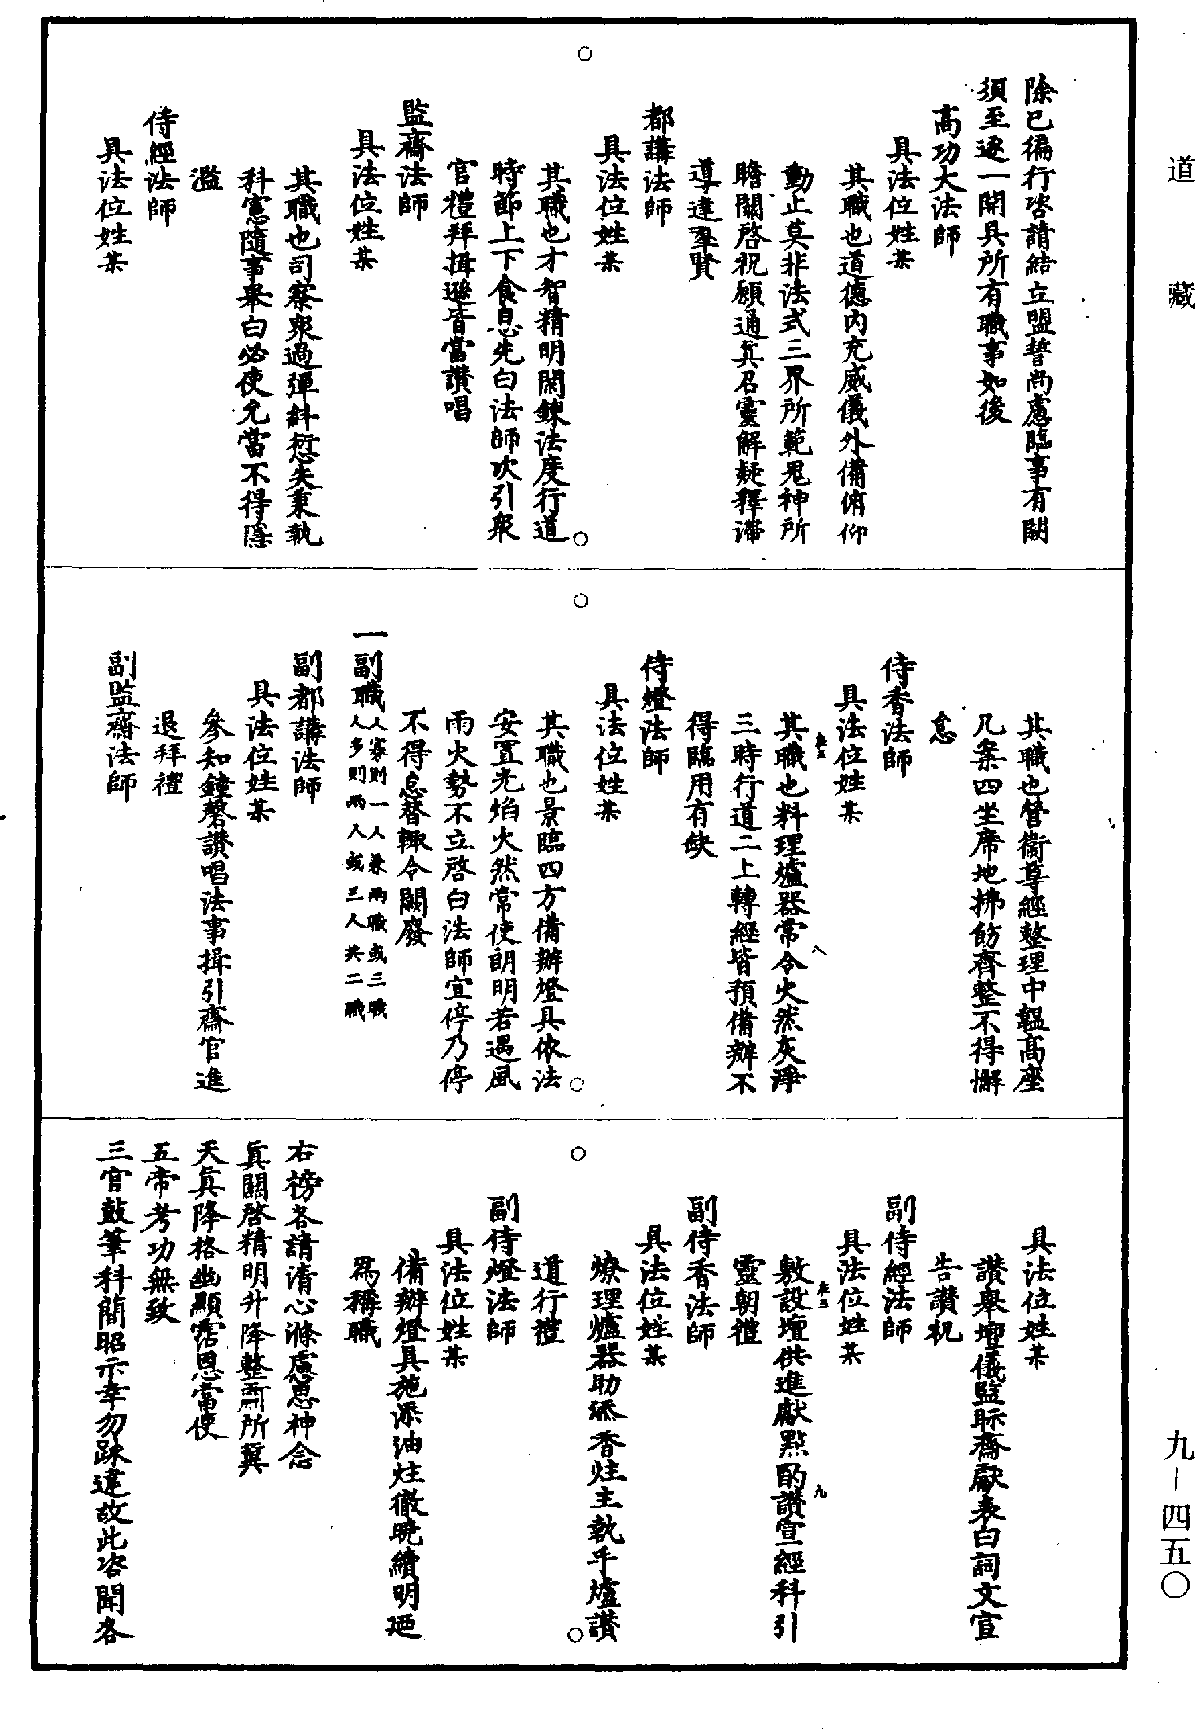 道藏
除已徧行咨請結立盟誓尚慮臨事有闕
須至逐一開具所有職事如後
高功大法師
具法位姓某
其職也道德內充威儀外備俯仰
動止莫非法式三界所範鬼神所
瞻關啓祝願通眞召靈解疑釋滯
導達羣賢
都講法師
具法位姓某
其職也才智精明閑鍊法度行道
時節上下食息先白法師次引衆
官禮拜揖遜皆當讚唱
監齋法師
具法位姓某
其職也司察衆過彈糾愆失秉執
科憲隨事舉白必使允當不得隱
濫
侍經法師
具法位姓某
其職也營衞尊經整理巾韞高座
几案四坐席地拂飭齊整不得懈
怠
侍香法師
具法位姓某
其職也料理爐器常令火然灰淨
三時行道二上轉經皆預備辦不
得臨用有缺
侍燈法師
具法位姓某
其職也景臨四方備辦燈具依法
安置光焰火然常使朗明若遇風
雨火勢不立啓白法師宜停乃停
不得怠替輙令闕廢
一副職人寡則一人兼兩職或三職
人多則兩人或三人共二職
副都講法師
具法位姓某
參知鐘磬讚唱法事揖引齋官進
退拜禮
副監齋法師
具法位姓某
讚舉壇儀監眎齋獻表白詞文宣
告讚祝
副侍經法師
具法位姓某
敷設壇供進獻點酌讚宣經科引
靈朝禮
副侍香法師
具法位姓某
燎理爐器助添香炷主執手爐讚
道行禮
副侍燈法師
具法位姓某
備辦燈具施添油炷徹曉續明廼
爲稱職
右榜各請清心滌慮思神念
眞關啓精明升降整肅所冀
天眞降格幽顯霑恩當使
五帝考功無致
三官鼓筆科簡昭示幸勿踈違故此咨聞各
九－四五〇